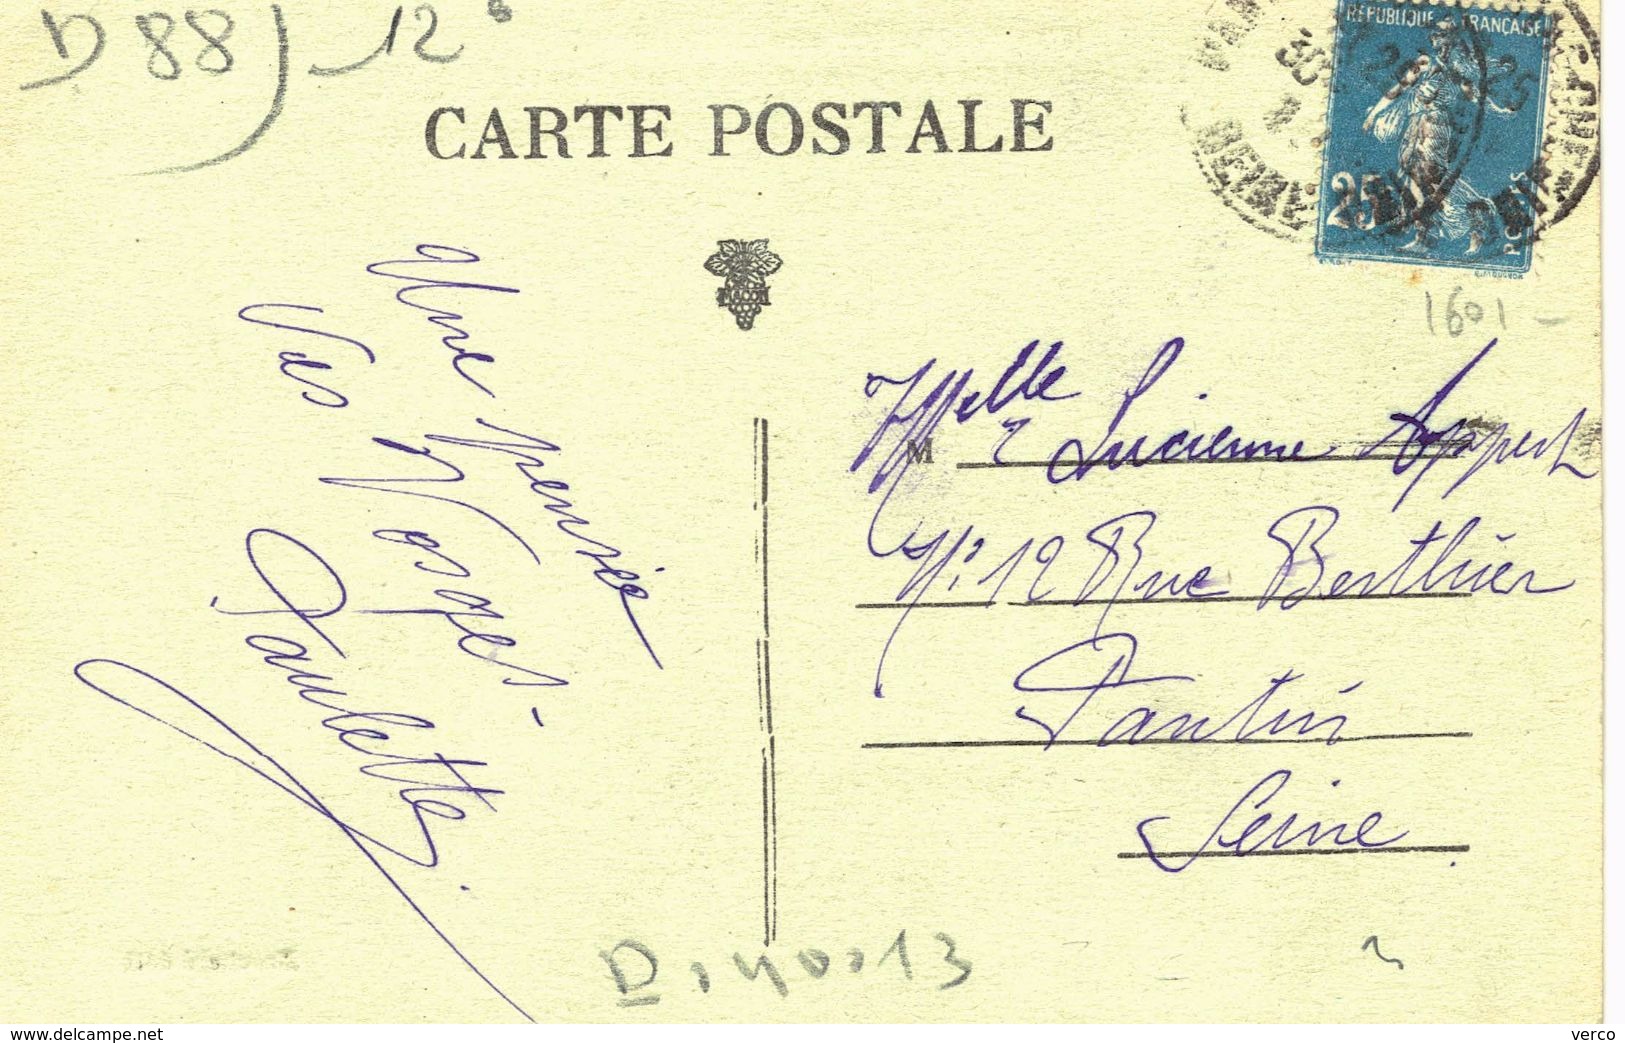 D 88 12
CARTE POSTALE
REPUBLIQUE FRANÇAISE
25
POSTES
1601 -
Une pensée
des Vosges
Paulette.
M
Melle Lucienne Appert
N: 12 Rue Berthier
Pantin
Seine
D. 40.13
delcampe.net
verco